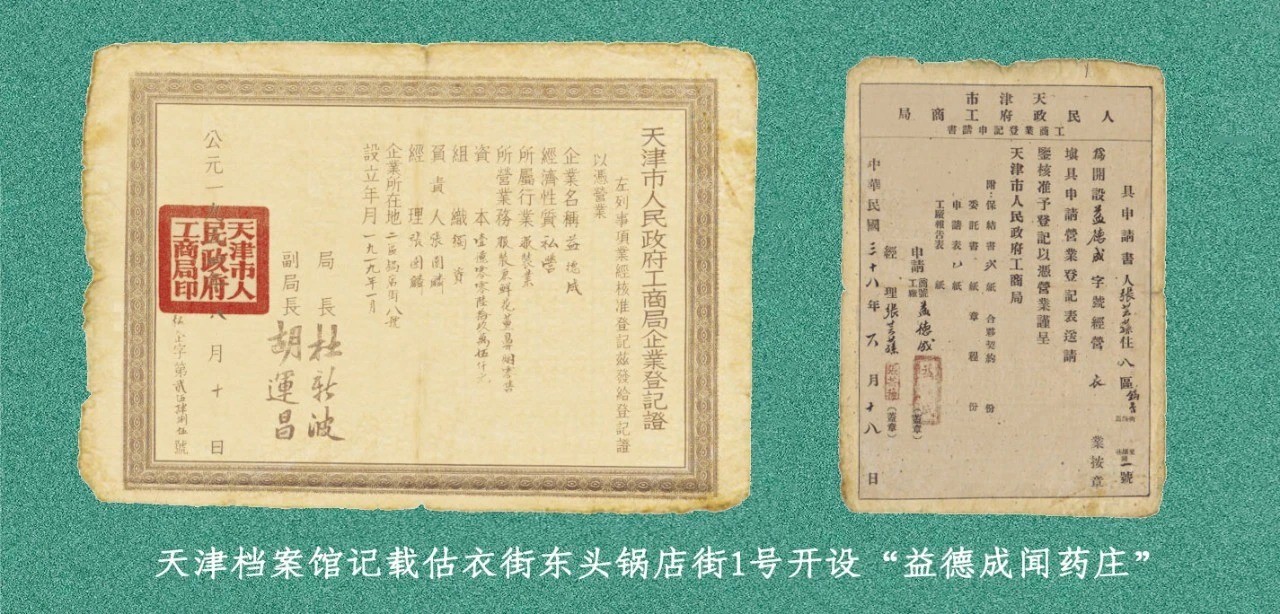 天津市人民政府工商局企業登記證
左列事項業經核准登記茲發給登記證
以憑營業
企業名稱益德成
經濟性質私營
所屬行業服裝業
所營業務
資本
組織獨資
負責人張國麟
經理張國麟
企業所在地二區鍋店街八號
設立年月一九一九年一月
局長杜新波
副局長胡運昌
公元一九 八月十日
天津市人民政府工商局印
天津市
人民政府工商局
工商業登記申請書
具申請書人張 住八區鍋店街 一號
為開設益德成字號經營衣業按章
填具申請營業登記表送請
鑒核准予登記以憑營業謹呈
天津市人民政府工商局
附:保結書弍紙 合夥契約 份
委託書 紙 章程 份
申請表 紙
工廠報告表 紙
申請商號工廠益德成(蓋章)
經理張 (蓋章)
中華民國三十八年六月十八日
天津档案馆记载估衣街东头锅店街1号开设“益德成闻药庄”